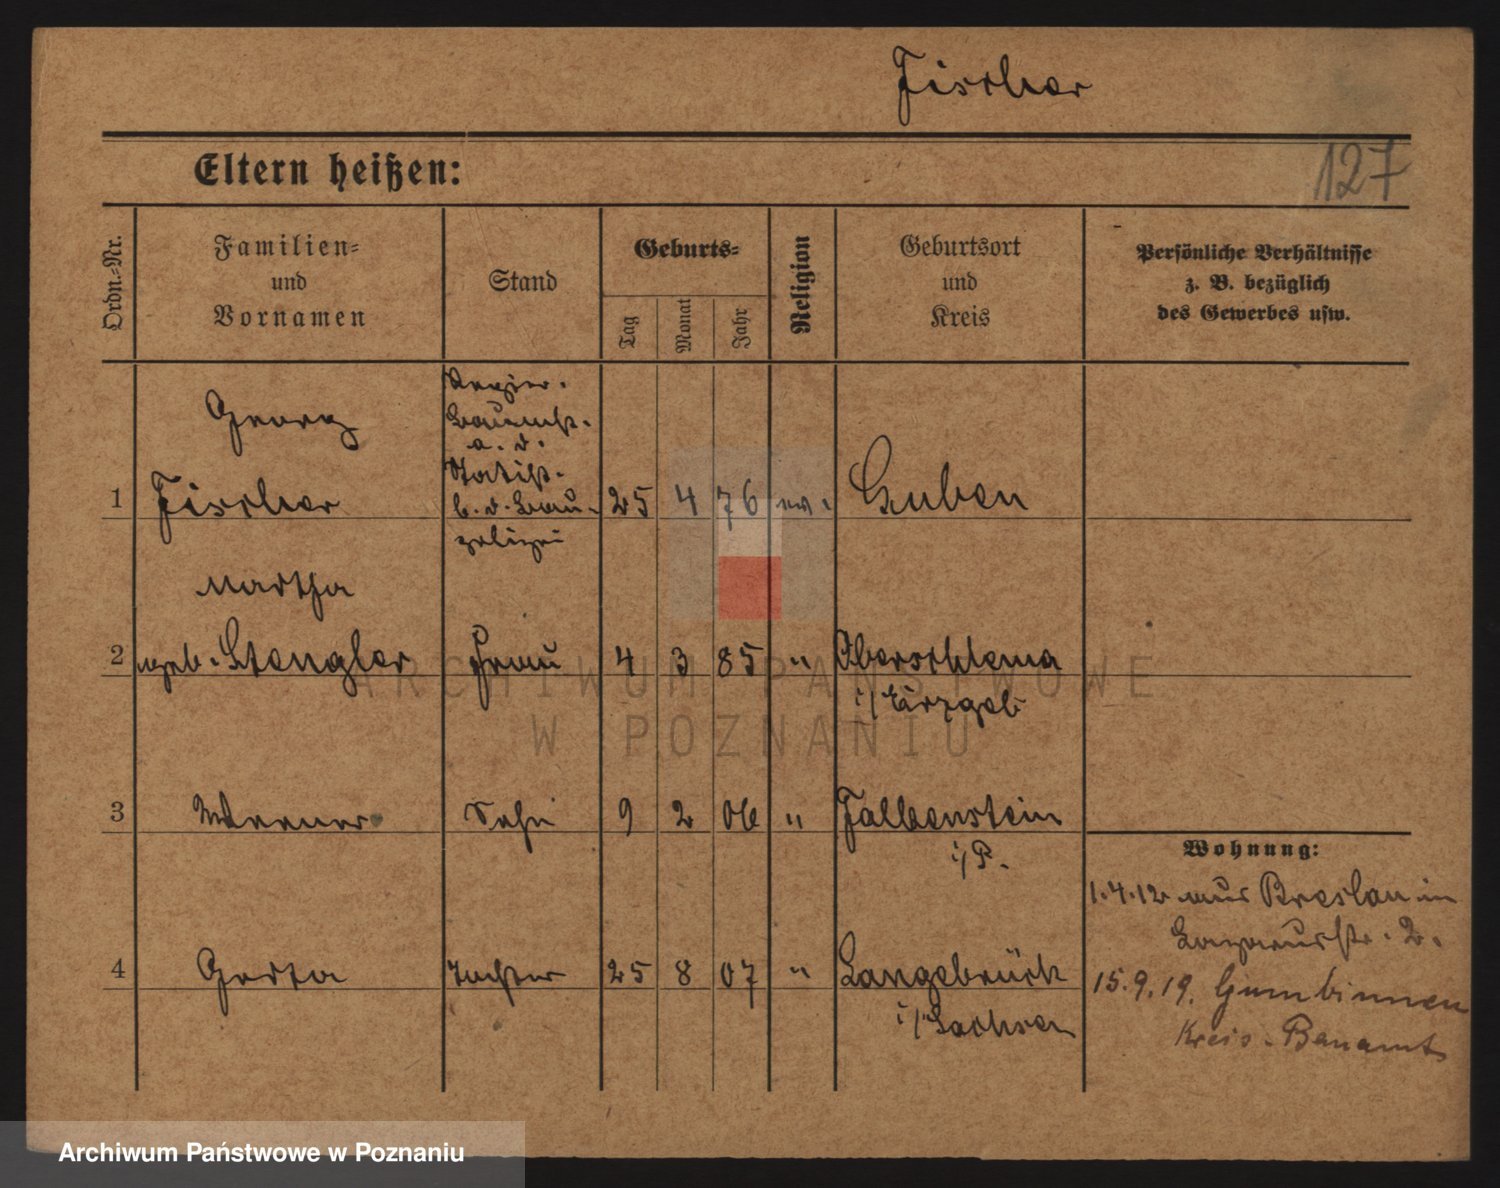 Fischer
Eltern heißen:
127
Ordn.-Nr.
Familien-
und
Vornamen
Stand
Geburts-
Tag
Monat
Jahr
Religion
Geburtsort
und
Kreis
Persönliche Verhältnisse
z. B. bezüglich
des Gewerbes usw.
Georg
Regier.
Baumst.
a. D.
Statist.
b. d. Bau-
polizei
1 Fischer 25 4 76 ev. Guben
Martha
2 geb. Stengler Frau 4 3 85 " Oberschlema
i/Erzgeb
3 Werner Sohn 9 2 06 " Falkenstein
i/P.
4 Gerta Tochter 25 8 07 " Langebrück
i/Sachsen
Wohnung:
1.4.12 aus Breslau in
Lazarusstr. 2.
15.9.19. Gumbinnen
Kreis-Bauamt
ARCHIWUM PAŃSTWOWE
W POZNANIU
Archiwum Państwowe w Poznaniu